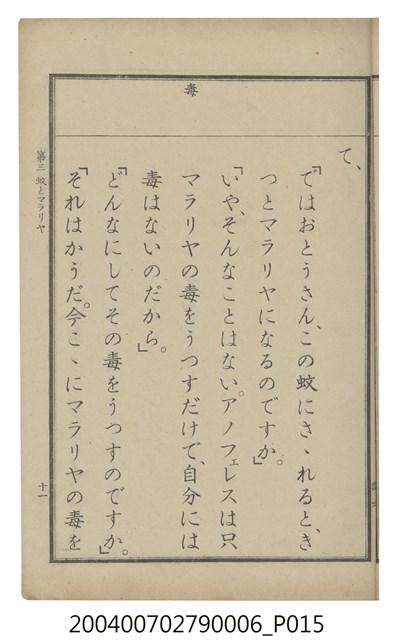 毒
て、
「ではおとうさん、この蚊にさゝれると、き
つとマラリヤになるのですか。」
「いや、そんなことはない。アノフェレスは只
マラリヤの毒をうつすだけで、自分には
毒はないのだから。」
「どんなにしてその毒をうつすのですか。」
「それはかうだ。今こゝにマラリヤの毒を
第三 蚊とマラリヤ
十一
200400702790006_P015